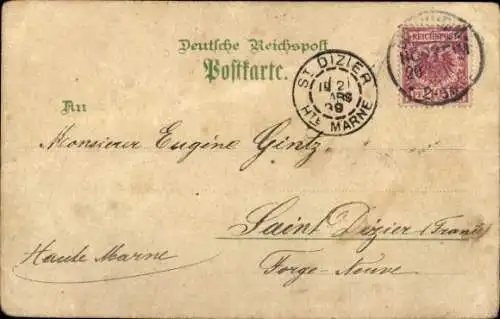 Deutsche Reichspost
Postkarte.
REICHSPOST
ST. DIZIER
HTE MARNE
An
Monsieur Eugène Gintz,
Saint Dizier (France)
Haute Marne
Forge-Neuve